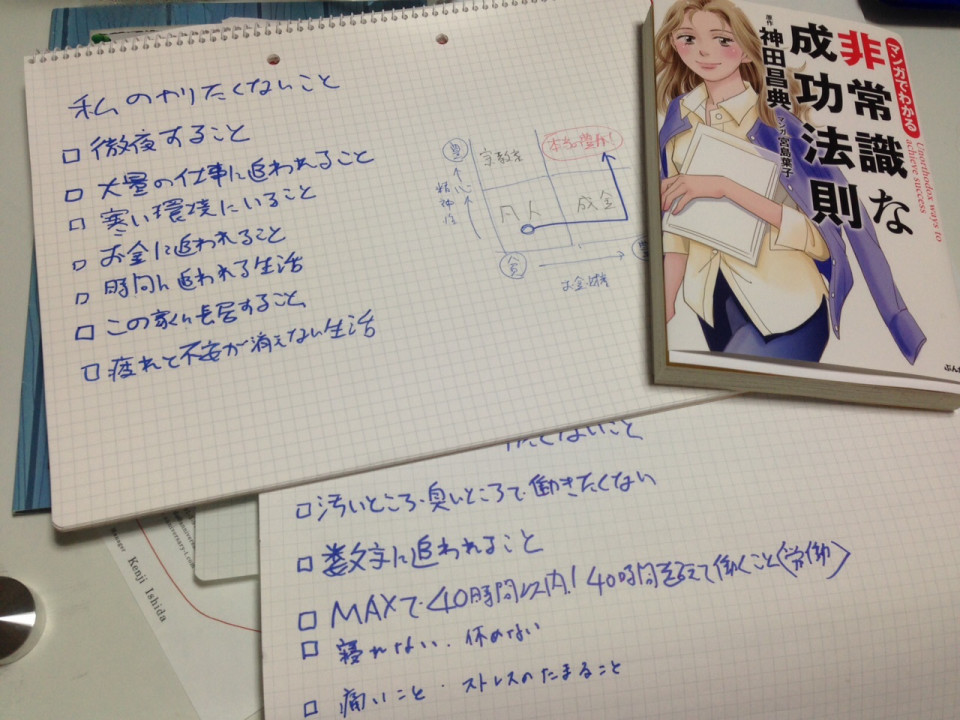 私のやりたくないこと
□ 徹夜すること
□ 大量の仕事に追われること
□ 寒い環境にいること
□ お金に追われること
□ 時間に追われる生活
□ この家に長居すること
□ 疲れと不安が消えない生活
豊
宗教家
精神性
凡人
成金
貧
お金
マンガでわかる
非常識な
成功法則
Unorthodox ways to
achieve success
原作 神田昌典
マンガ 宮島葉子
ぶんか
たくないこと
□ 汚いところ・臭いところで働きたくない
□ 数字に追われること
□ MAXで40時間以内! 40時間を超えて働くこと(労働)
□ 寝れない・休めない
□ 痛いこと・ストレスのたまること
Manager
Kenji Ishida